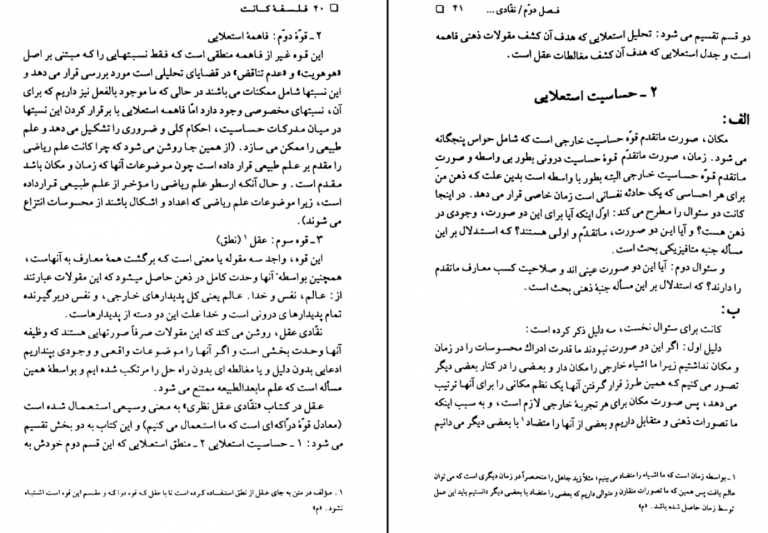 ۴۰ فلسفهٔ کانت
۲ـ قوّهٔ دوّم: فاهمهٔ استعلایی
این قوه غیر از فاهمه منطقی است که فقط نسبتهایی را که مبتنی بر اصل
«هوهویت» و «عدم تناقض» در قضایای تحلیلی است مورد بررسی قرار می‌دهد و
این نسبتها شامل ممکنات می‌باشند در حالی که ما موجود بالفعل نیز داریم که برای
آن، نسبتهای مخصوصی وجود دارد امّا فاهمه استعلایی با برقرار کردن این نسبتها
در میان مدرکات حساسیت، احکام کلی و ضروری را تشکیل می‌دهد و علم
طبیعی را ممکن می سازد. (از همین جا روشن می شود که چرا کانت علم ریاضی
را مقدم بر علم طبیعی قرار داده است چون موضوعات آنها که زمان و مکان باشد
مقدم است. و حال آنکه ارسطو علم ریاضی را مؤخر از علم طبیعی قرارداده
است، زیرا موضوعات علم ریاضی که اعداد و اشکال باشند از محسوسات انتزاع
می شوند).
۳ـ قوه سوم: عقل ۱ (نطق)
این قوه، واجد سه مقوله یا معنی است که برگشت همهٔ معارف به آنهاست،
همچنین بواسطه آنها وحدت کامل در ذهن حاصل میشود که این مقولات عبارتند
از: عالم، نفس و خدا. عالم یعنی کل پدیدارهای خارجی، و نفس دربرگیرنده
تمام پدیدارها ی درونی است و خدا علت این دو دسته از پدیدارهاست.
نقّادی عقل، روشن می کند که این مقولات صرفاً صورتهایی هستند که وظیفه
آنها وحدت بخشی است و اگر آنها را موضوعات واقعی و وجودی بپنداریم
ادعایی بدون دلیل و یا مغالطه ای بدون راه حل را مرتکب شده ایم و بواسطهٔ همین
مسأله است که علم مابعدالطبیعه ممتنع می شود.
عقل در کتاب «نقّادی عقل نظری» به معنی وسیعی استعمال شده است
(معادل قوّهٔ درّاکه ای است که ما استعمال می کنیم) و این کتاب به دو بخش تقسیم
می شود: ۱ـ حساسیت استعلایی ۲ـ منطق استعلایی که این قسم دوم خودش به
۱. مؤلف در متن به جای عقل از نطق استفاده کرده است تا با عقل که قوه درّاکه و مقسم این قوه است اشتباه
نشود. «م»
فصل دوّم / نقّادی ... ۴۱
دو قسم تقسیم می شود: تحلیل استعلایی که هدف آن کشف مقولات ذهنی فاهمه
است و جدل استعلایی که هدف آن کشف مغالطات عقل است.
۲ـ حساسیت استعلایی
الف:
مکان، صورت ماتقدم قوّه حساسیت خارجی است که شامل حواس پنجگانه
می شود. زمان، صورت ماتقدّم قوهٔ حساسیت درونی بطور بی واسطه و صورت
ماتقدم قوّه حساسیت خارجی البته بطور با واسطه است بدین علت که ذهن من
برای هر احساسی که یک حادثه نفسانی است زمان خاصی قرار می دهد. در اینجا
کانت دو سئوال را مطرح می کند: اوّل اینکه آیا برای این دو صورت، وجودی در
ذهن هست؟ و آیا این دو صورت، ماتقدّم و اولی هستند؟ که استدلال بر این
مسأله جنبه متافیزیکی بحث است.
و سئوال دوم: آیا این دو صورت عینی اند و صلاحیت کسب معارف ماتقدم
را دارند؟ که استدلال بر این مسأله جنبهٔ ذهنی بحث است.
ب:
کانت برای سئوال نخست، سه دلیل ذکر کرده است:
دلیل اول: اگر این دو صورت نبودند ما قدرت ادراک محسوسات را در زمان
و مکان نداشتیم زیرا ما اشیاء خارجی را مکان دار و بعضی را در کنار بعضی دیگر
تصور می کنیم که همین طرز قرار گرفتن آنها یک نظم مکانی را برای آنها ترتیب
می دهد، پس صورت مکان برای هر تجربهٔ خارجی لازم است، و به سبب اینکه
ما تصورات ذهنی و متقابل داریم و بعضی از آنها را متضاد ۱ با بعضی دیگر می دانیم
۱ـ بواسطه زمان است که ما اشیاء را متضاد می بینیم، مثلاً زید جاهل را منحصراً در زمان دیگری است که می توان
عالم یافت پس همین که ما تصورات متقارن و متوالی داریم که بعضی را متضاد با بعضی دیگر دانستیم باید این عمل
توسط زمان حاصل شده باشد. «م»